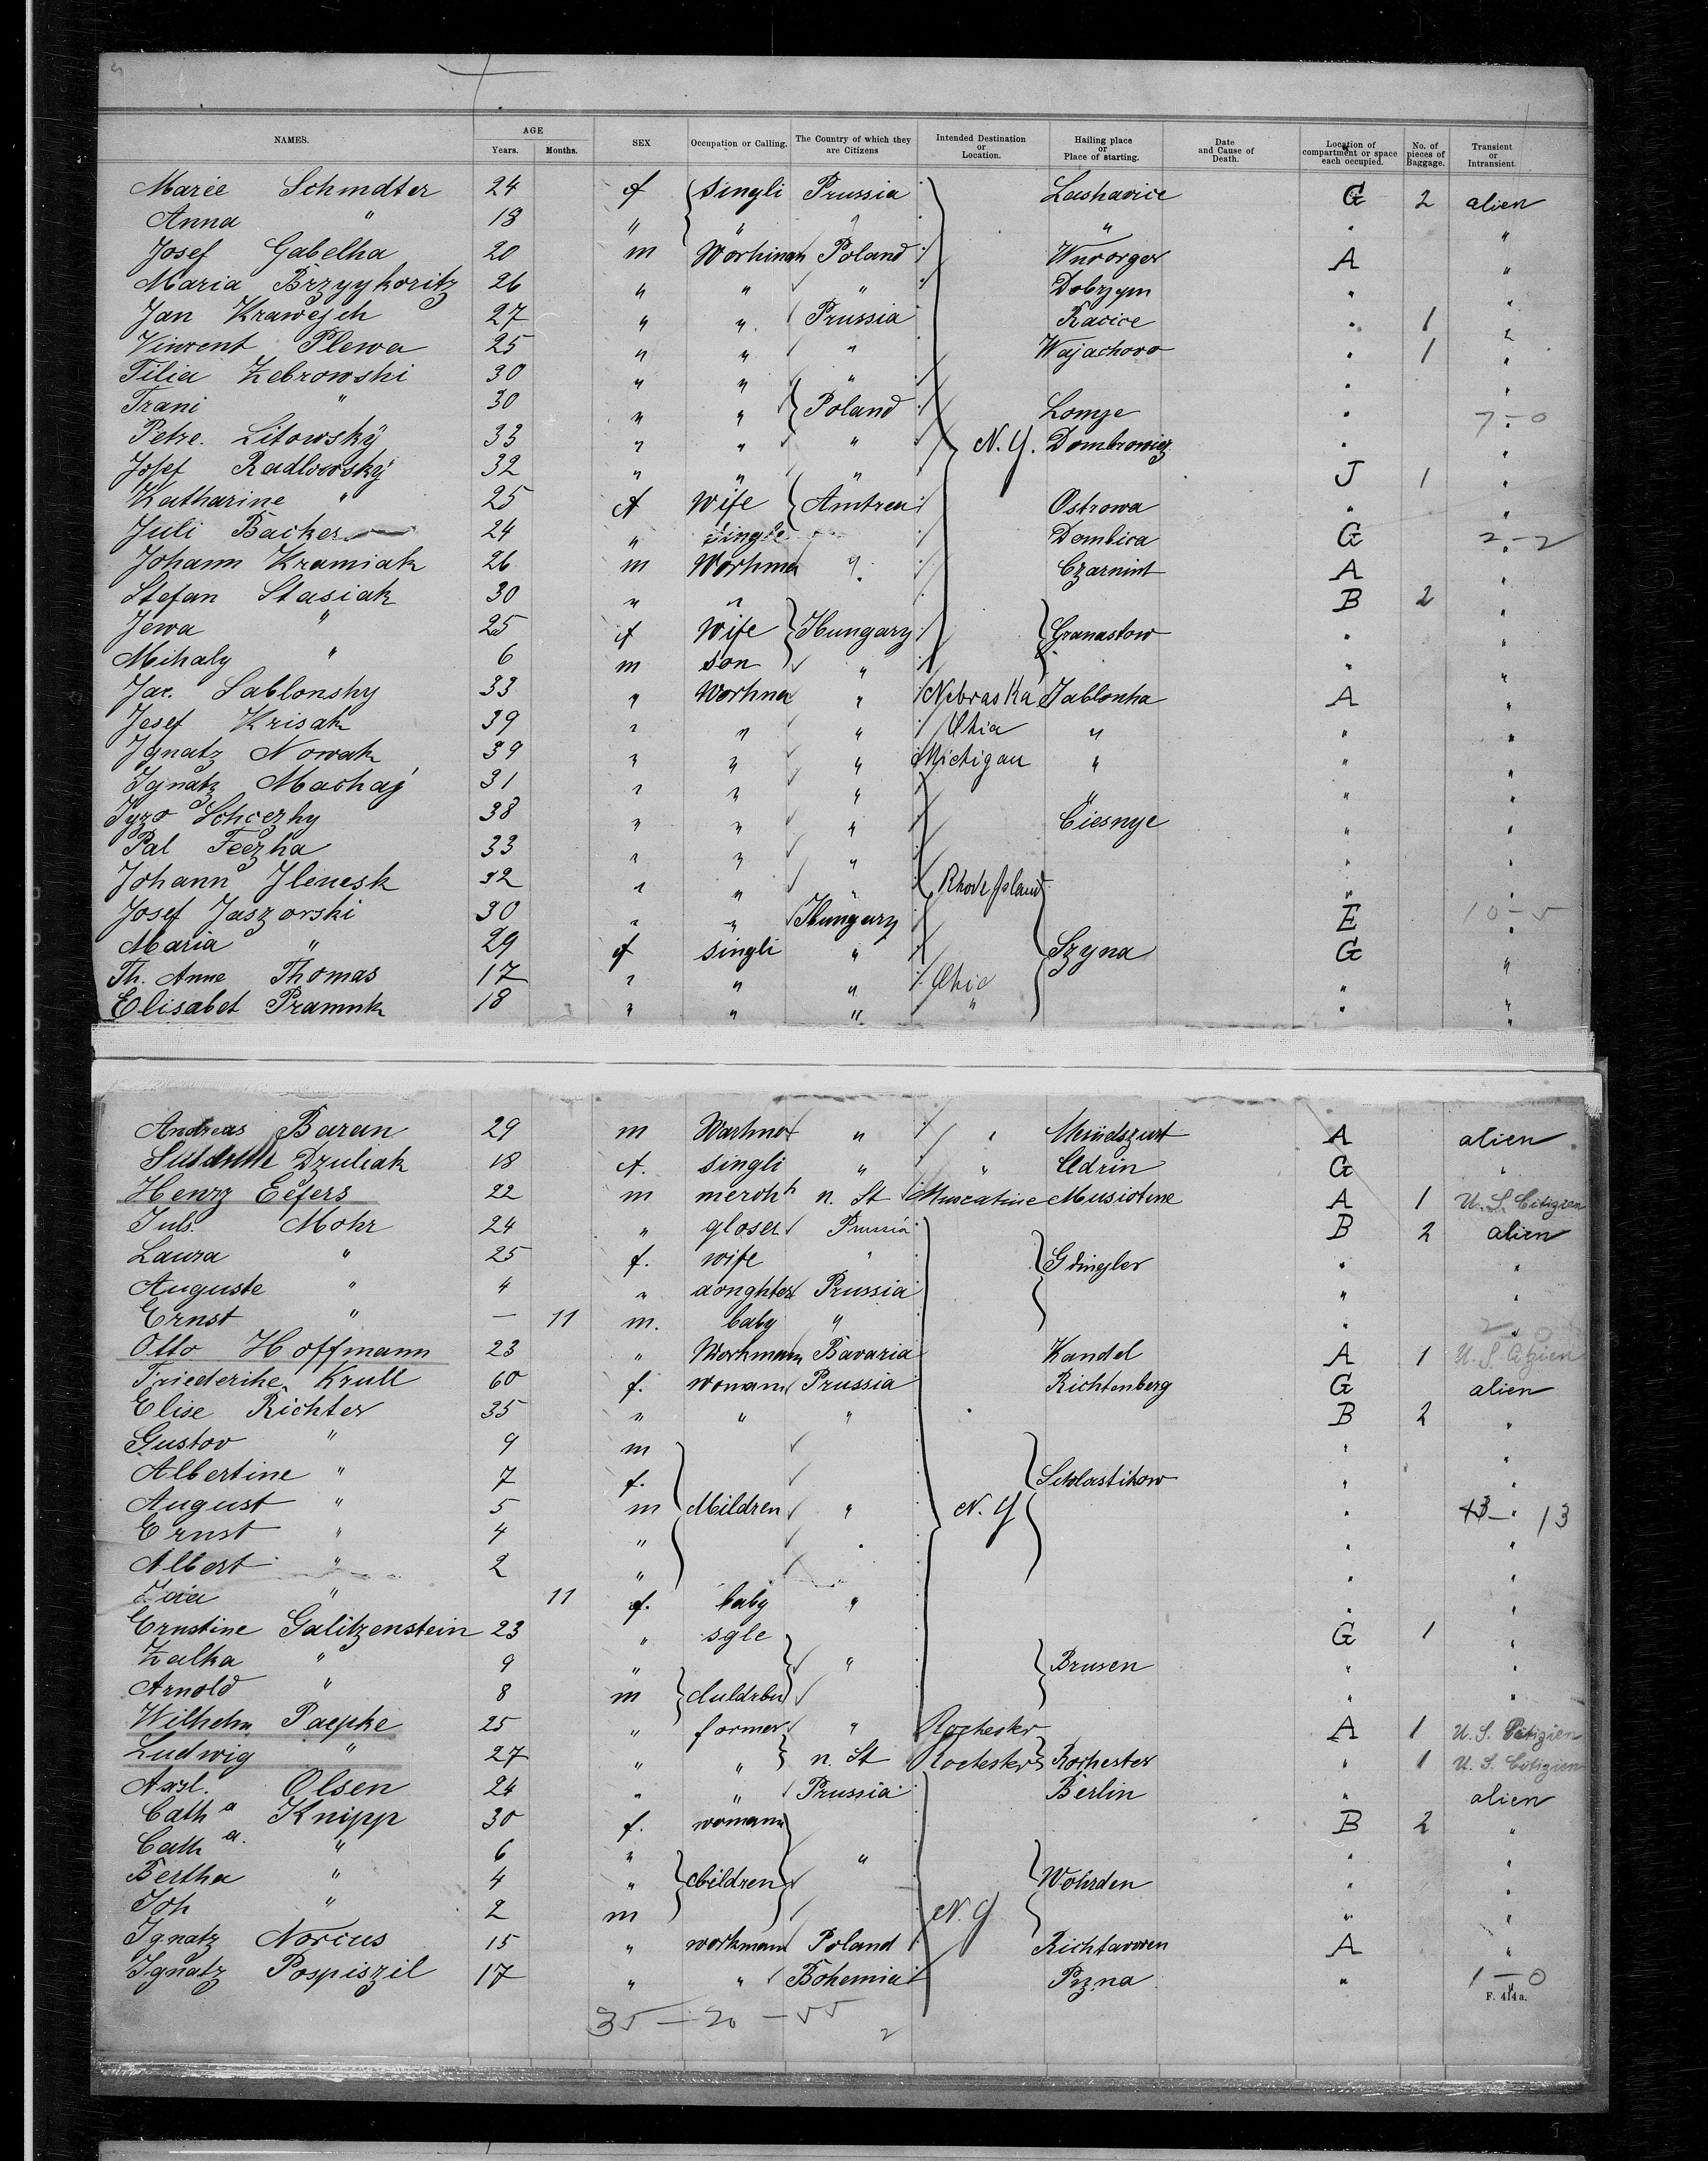 NAMES. AGE Years. Months. SEX Occupation or Calling. The Country of which they are Citizens Intended Destination or Location. Hailing place or Place of starting. Date and Cause of Death. Location of compartment or space each occupied. No. of pieces of Baggage. Transient or Intransient.
Marie Schmdter 24 f singli Prussia Lashavice G 2 alien
Anna " 18 " " " " "
Josef Gabelha 20 m Workinan Poland A "
Maria Brzyykoritz 26 " " " Dobrzym " "
Jan Krawejch 27 " " Prussia Racice " 1 "
Vinvent Plewa 25 " " " Wajachovo " 1 "
Filia Zebrowski 30 " " " " "
Frani " 30 " " Poland Lomze " 7-0
Petre. Litowsky 33 " " " N.Y. Dombrowicz " "
Josef Radlowsky 32 " " " J 1 "
Katharine " 25 f Wife Amtrea Ostrowa " "
Juli Backer 24 " Single Dombica G 2-2
Johann Kramiak 26 m Workma " Czarnint A "
Stefan Stasiak 30 " " B 2 "
Jewa " 25 f Wife Hungary Granastow " "
Mihaly " 6 m son " " "
Jac. Sablonsky 33 " Workma " Nebraska Jablonka A "
Josef Krisak 39 " " " Ohia " " "
Ignatz Nowak 39 " " " Michigan " " "
Ignatz Machaj 31 " " " " " "
Schoezky 38 " " " Ciesnye " "
Pal Feezha 33 " " " " "
Johann Jlenesk 32 " " " Rhode Island " "
Josef Jaszorski 30 " " Hungary E 10-5
Maria " 29 f singli " Szyna G "
Th. Anne Thomas 17 " " " Ohio " "
Elisabet Pramnk 18 " " " " " "
Andreas Baran 29 m " " A alien
Dzuleak 18 f. singli " " Udrin G "
Henry Eefers 22 m merch n. St Muscatine Musiotine A 1 U. S. Citigzen
Juls. Mohr 24 " gloser Prussia B 2 alien
Laura " 25 f. wife " Gdingler " "
Auguste " 4 " doughter Prussia " "
Ernst " — 11 m. baby " "
Otto Hoffmann 23 " Workmann Bavaria Kandel A 1 U. S. Citzien
Friederike Krull 60 f. womann Prussia Richtenberg G alien
Elise Richter 35 " " " B 2 "
Gustov " 9 m " "
Albertine " 7 f. Scholastikow " "
August " 5 m Children " N. Y " 13 - 13
Ernst " 4 " " "
Albert " 2 " " "
" 11 f. baby " " "
Ernstine Galitzenstein 23 " sgle G 1 "
Zalka " 9 " " Brusen " "
Arnold " 8 m children " "
Wilhelm Paepke 25 " former " Rochester A 1 U. S. Citigien
Ludwig " 27 " " n. St Rochester Rochester " 1 U. S. Citigien
Axel. Olsen 24 " " Prussia Berlin " alien
Catha Knipp 30 f. womann B 2 "
Catha. " 6 " " " "
Bertha " 4 " children Wöhrden " "
Joh " 2 m N. Y " "
Ignatz Norcus 15 " workman Poland Richtawren A "
Ignatz Pospiszil 17 " " Bohemia Pizna " 1-0
F. 414a.
35 - 20 - 55